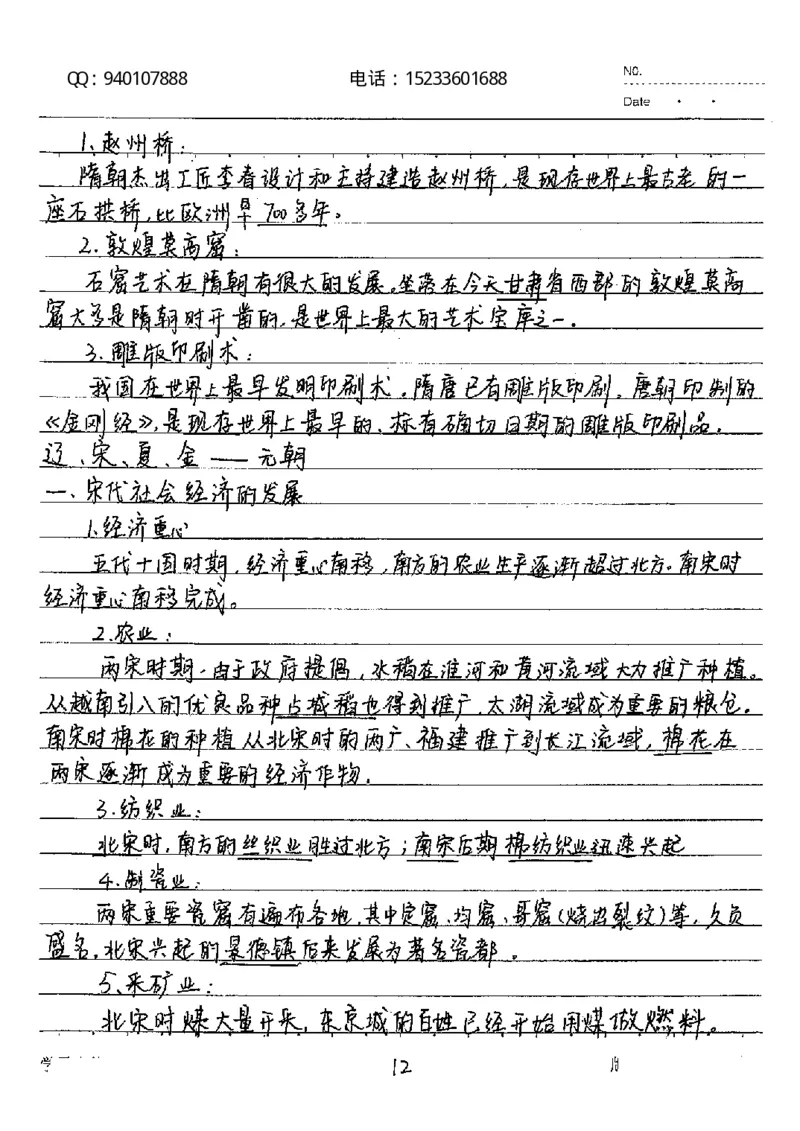 QQ：940107888
电话：15233601688
NO.
Date
1、赵州桥：
隋朝杰出工匠李春设计和主持建造赵州桥，是现存世界上最古老的一
座石拱桥，比欧洲早700多年。
2.敦煌莫高窟：
石窟艺术在隋朝有很大的发展。坐落在今天甘肃省西部的敦煌莫高
窟大多是隋朝时开凿的，是世界上最大的艺术宝库之一．
3.雕版印刷术：
我国在世界上最早发明印刷术．隋唐已有雕版印刷．唐朝印制的
《金刚经》，是现存世界上最早的、标有确切日期的雕版印刷品．
辽、宋、夏、金——元朝
一、宋代社会经济的发展
1.经济重心
五代十国时期，经济重心南移，南方的农业生平逐渐超过北方。南宋时
经济重心南移完成。
2.农业：
两宋时期．由于政府提倡，水稻在淮河和黄河流域大力推广种植。
从越南引入的优良品种占城稻也得到推广．太湖流域成为重要的粮仓．
南宋时棉花的种植从北宋时的两广、福建推广到长江流域，棉花在
两宋逐渐成为重要的经济作物．
3.纺织业：
北宋时，南方的丝织业胜过北方；南宋后期棉纺织业迅速兴起
4.制瓷业：
两宋重要瓷窑有遍布各地，其中定窑、均窑、哥窑（烧出裂纹）等，久负
盛名．北宋兴起的景德镇后来发展为著名瓷都。
5、采矿业：
北宋时煤大量开采，东京城的百姓已经开始用煤做燃料。
学
12